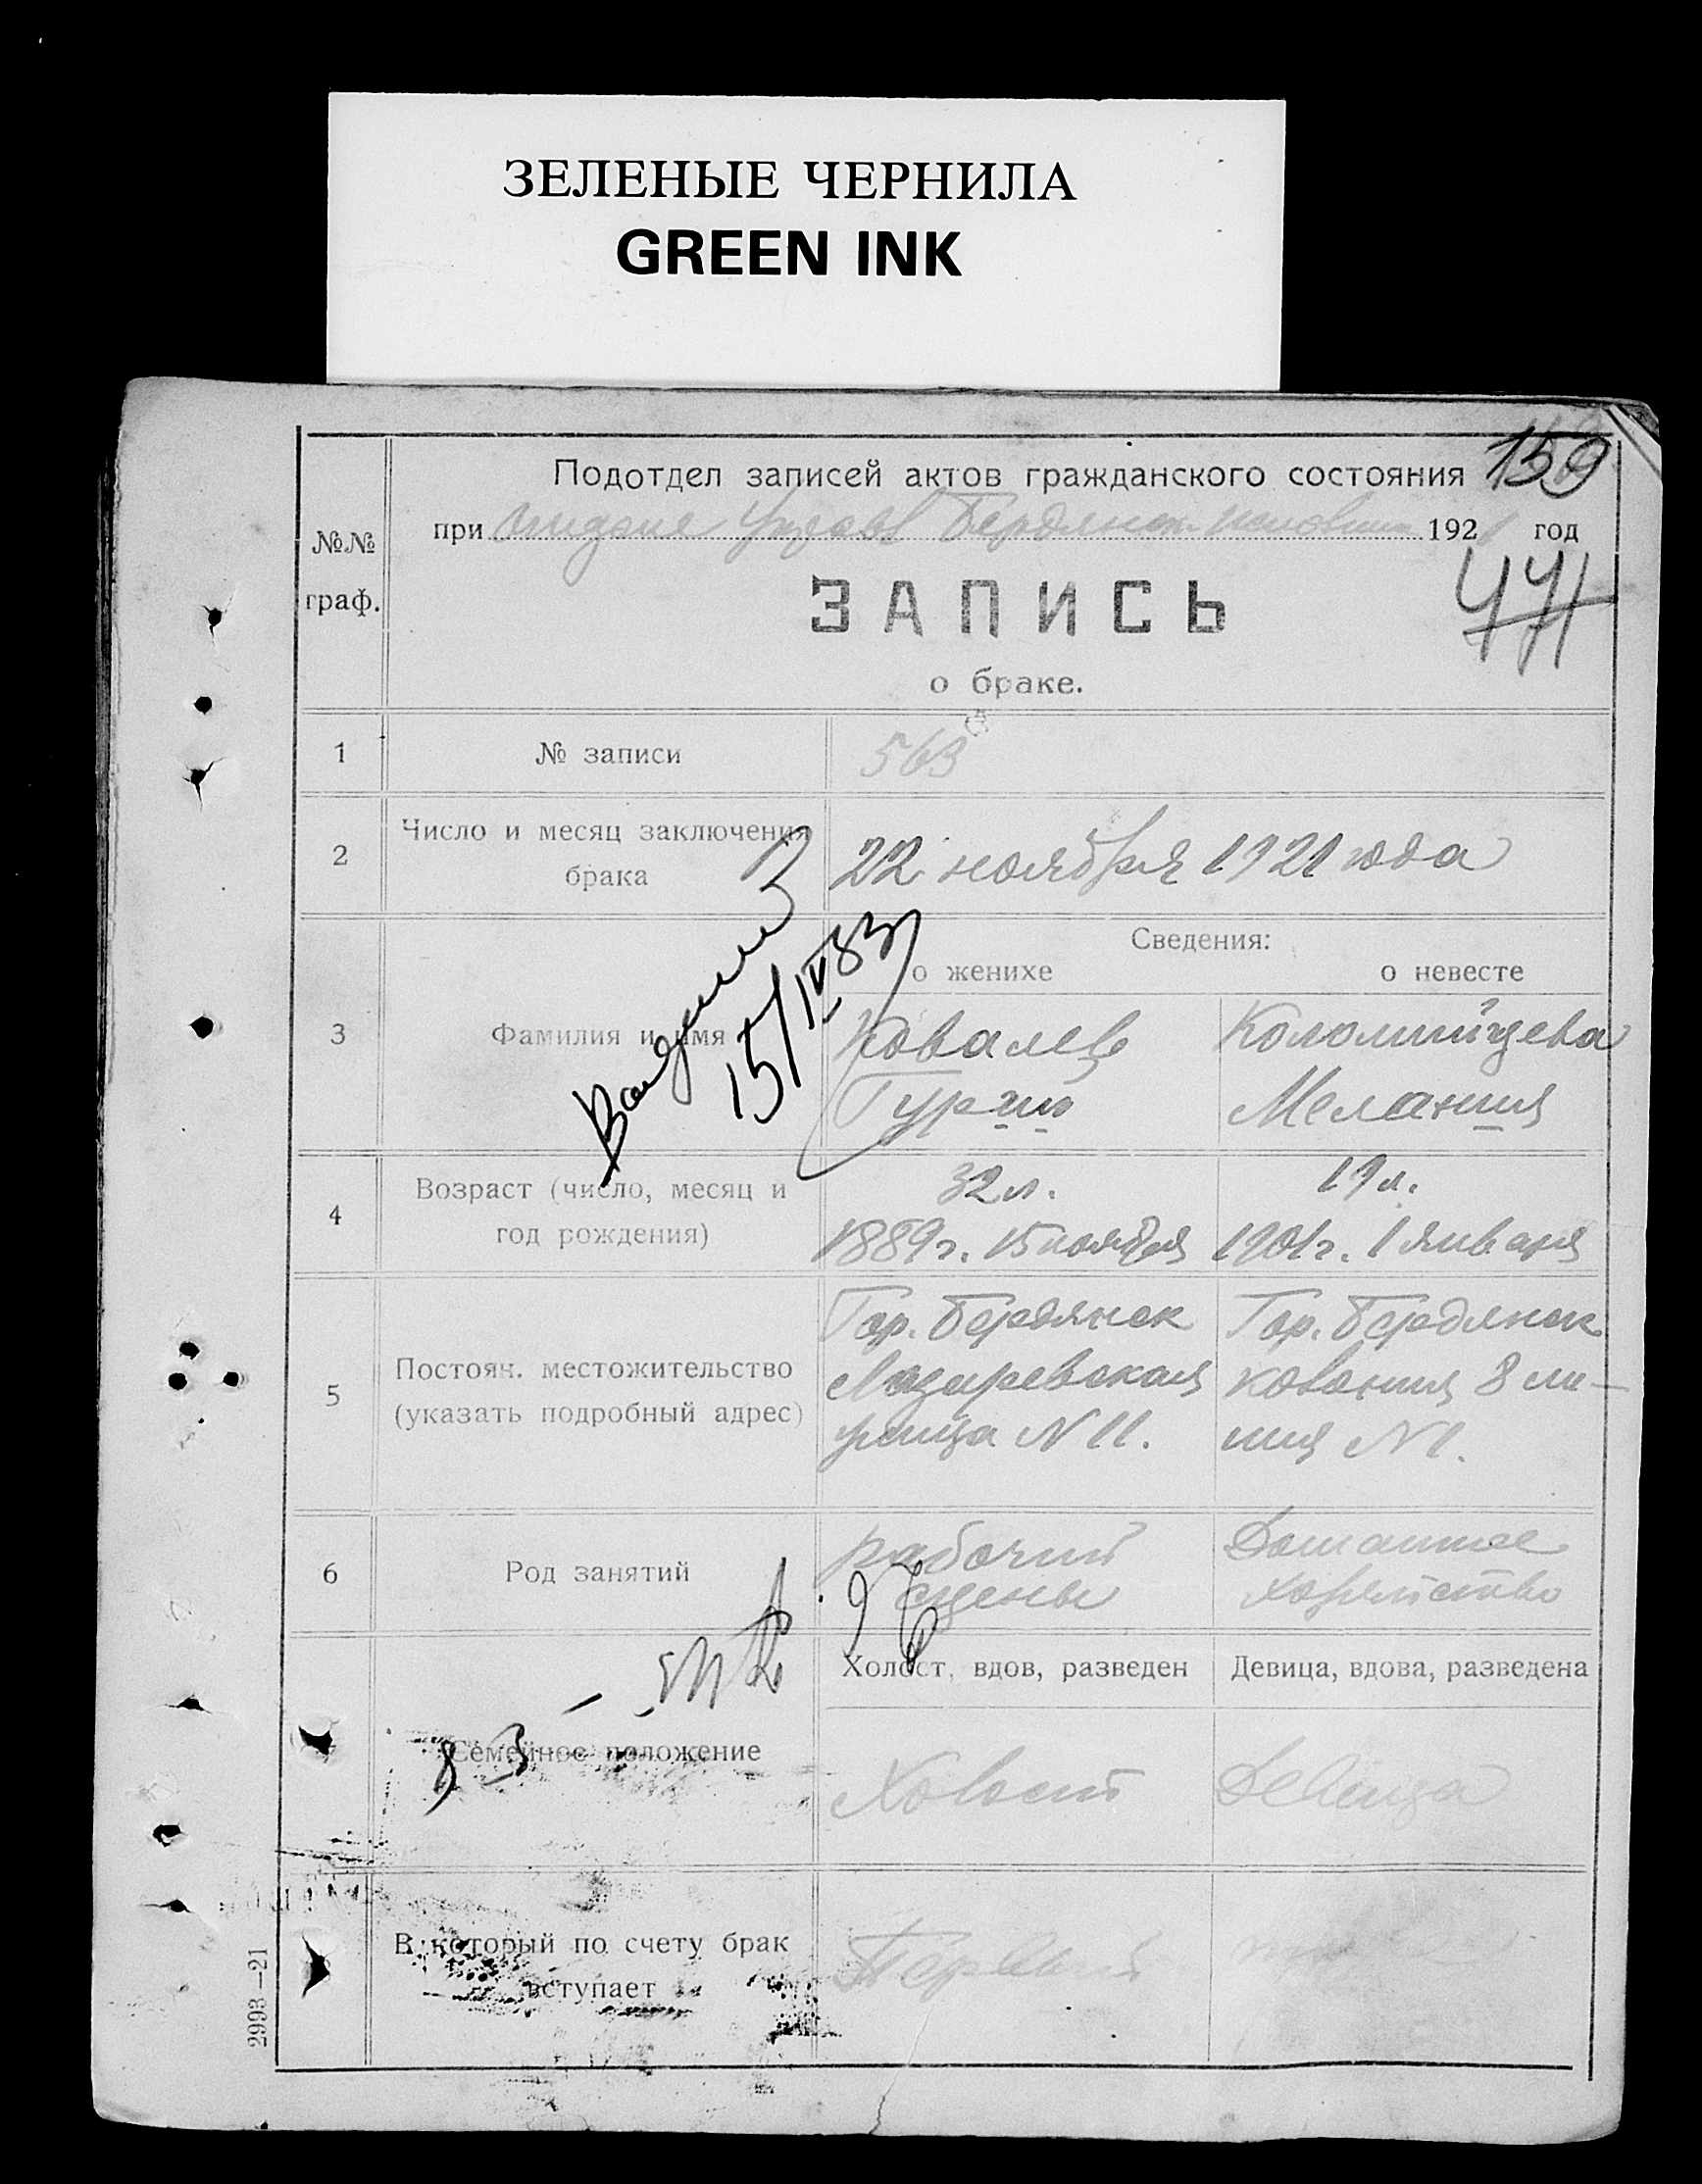 ЗЕЛЕНЫЕ ЧЕРНИЛА
GREEN INK
159
Подотдел записей актов гражданского состояния
при отделе Управ Бердянск 1921 год
№№ граф.
441
ЗАПИСЬ
о браке.
1 № записи 563
2 Число и месяц заключения брака 22 ноября 1921 года
Сведения:
о женихе о невесте
3 Фамилия и имя
Ковалев Коломийцева
Гурий Мелания
15/IV 83
4 Возраст (число, месяц и год рождения)
32 л. 19 л.
1889 г. 15 ноября 1901 г. 1 января
5 Постоян. местожительство (указать подробный адрес)
Гор. Бердянск Гор. Бердянск
Лазаревская 8 ли-
улица N 11. ния N 1.
6 Род занятий
рабочий Домашнее
сцены хозяйство
Холост, вдов, разведен Девица, вдова, разведена
Семейное положение
Холост Девица
В который по счету брак вступает
Первый
2993—21